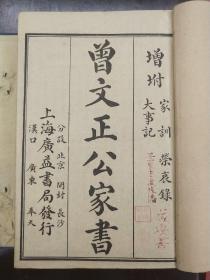 增坿 家訓 榮哀錄
大事記
曾文正公家書
分設 北京 開封 長沙
漢口 廣東 奉天
上海廣益書局發行